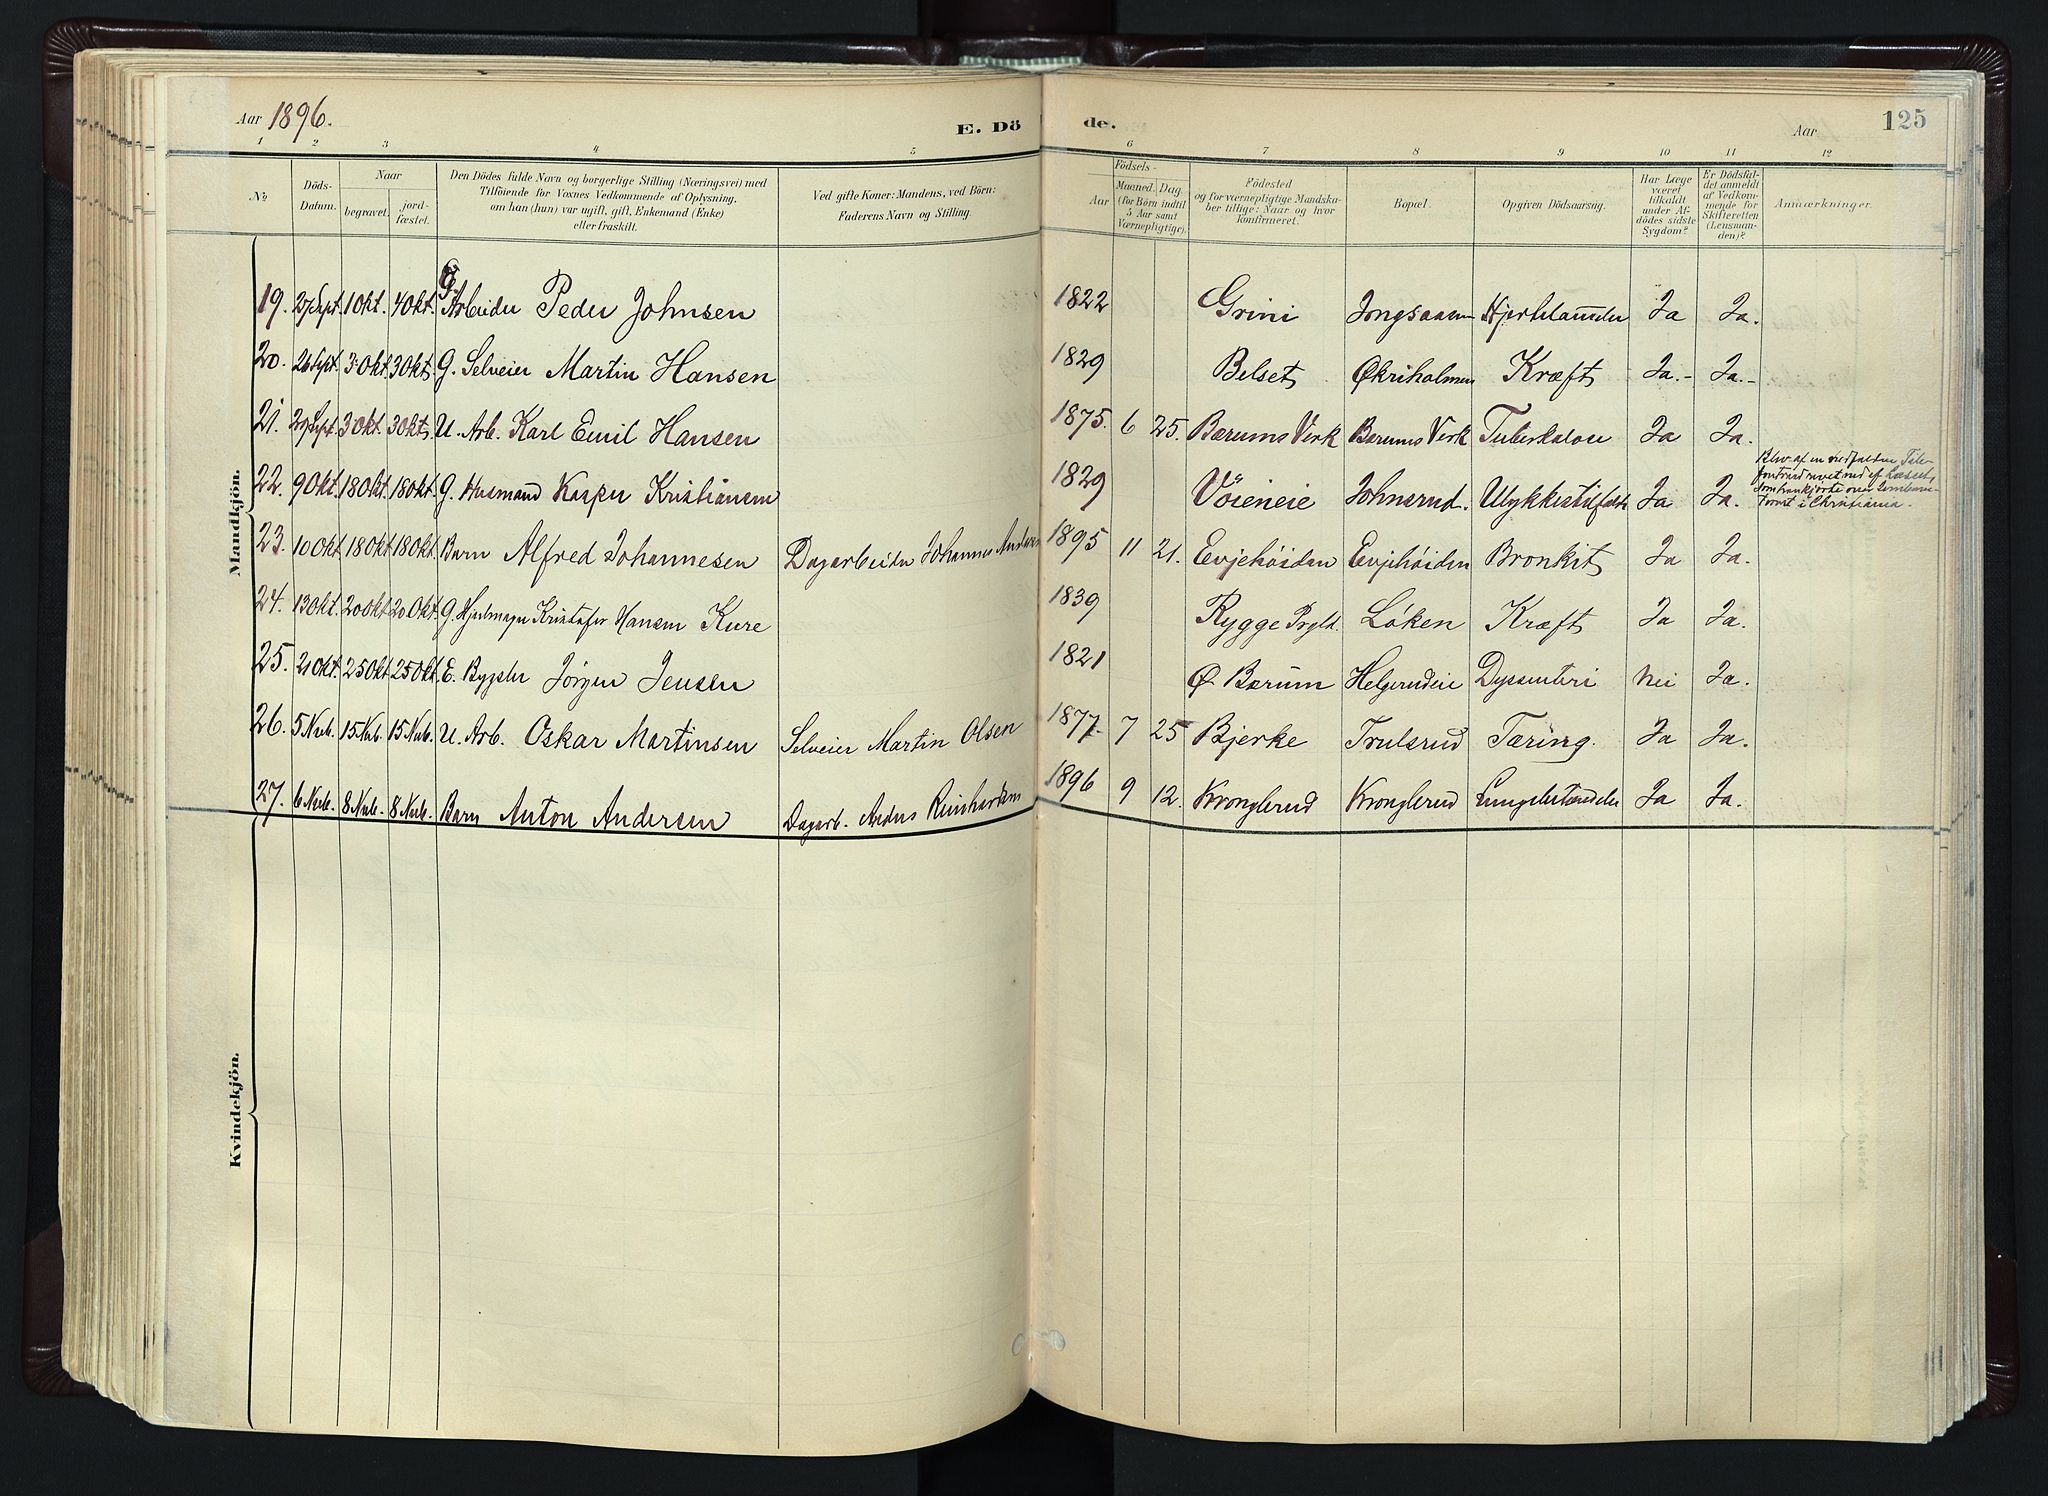 Aar 1896.
E. Dö de.
Aar
125
1 2 3 4 5 6 7 8 9 10 11 12
№
Döds-Datum.
Naar
begravet.
jord-fæstet.
Den Dödes fulde Navn og borgerlige Stilling (Næringsvei) med
Tilföiende for Voxnes Vedkommende af Oplysning,
om han (hun) var ugift, gift, Enkemand (Enke)
eller fraskilt.
Ved gifte Koner: Mandens, ved Börn:
Faderens Navn og Stilling.
Födsels-
Aar
Maaned. Dag.
(for Börn indtil
5 Aar samt
Værnepligtige).
Födested
og for værnepligtige Mandska-
ber tillige: Naar og hvor
konfirmeret.
Bopæl.
Opgiven Dödsaarsag.
Har Læge
været
tilkaldt
under Af-
dödes sidste
Sygdom?
Er Dödsfal-
det anmeldt
af Vedkom-
mende for
Skifteretten
(Lensman-
den)?
Anmærkninger.
Mandkjön.
19. 27 Sept. 1 Okt. 4 Okt. G. Arbeider Peder Johnsen 1822 Grini Jongsaasen Hjerteslammelse Ja Ja.
20. 26 Sept. 3 Okt 3 Okt. G. Selveier Martin Hansen 1829 Belset Økriholmen Kræft Ja.- Ja.-
21. 29 Sept. 3 Okt. 3 Okt. U. Arb. Karl Emil Hansen 1875. 6 25. Bærums Verk Bærums Verk Tuberkulose Ja Ja.
22. 9 Okt. 18 Okt. 18 Okt. G. Husmand Kasper Kristiansen 1829 Vöieneie Johnsrud. Ulykkestilfælde Ja Ja. Blev af en nedfalden Tele-
fontraad revet ned af Læsset,
som han kjørte over
Torvet i Christiania.
23. 10 Okt. 18 Okt. 18 Okt. Barn Alfred Johannesen Dagarbeider Johannes Andersen 1895 11 21. Evjehöiden Evjehöiden Bronkit Ja Ja.
24. 13 Okt. 20 Okt. 20 Okt. G. Kristofer Hansen Kure 1839 Rygge Prgld. Løken Kræft Ja Ja.
25. 21 Okt. 25 Okt 25 Okt. E. Bygsler Jörgen Jensen 1821 Ø. Bærum Helgerudeie Dyssenteri Nei Ja.
26. 5 Novb. 15 Novb. 15 Novb. U. Arb. Oskar Martinsen Selveier Martin Olsen 1877. 7 25 Bjerke Trulsrud Tæring. Ja Ja.
27. 6 Novb. 8 Novb. 8 Novb. Barn Anton Andersen Dagarb. Anders Reinhardsen 1896 9 12. Kronglerud Kronglerud Lungebetændelse Ja Ja.
Kvindekjön.